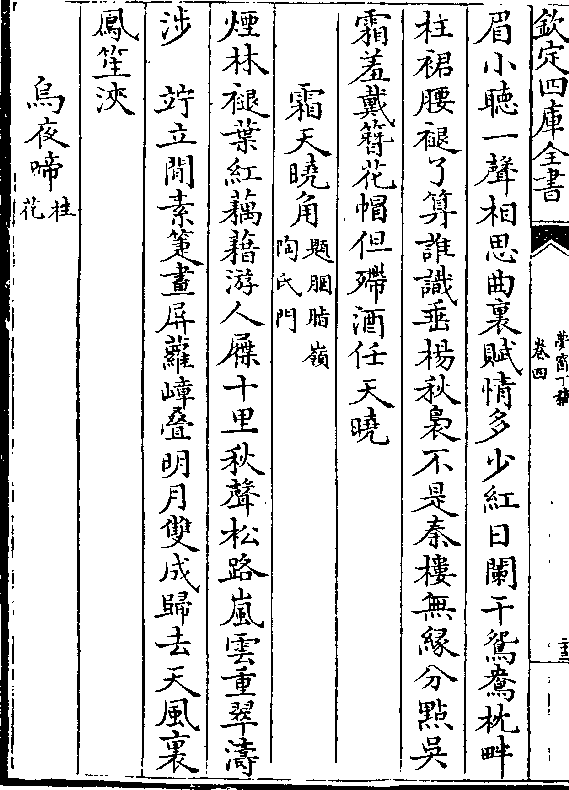 欽定四庫全書
夢窗丁稿
卷四
眉小聽一聲相思曲裏賦情多少紅日闌干鴛鴦枕畔
柱裙腰褪了算誰識垂楊秋裊不是秦樓無緣分點吳
霜羞戴簪花帽但殢酒任天曉
霜天曉角 題胭脂嶺
陶氏門
煙林褪葉紅藕藉游人屧十里秋聲松路嵐雲重翠濤
涉 竚立閒素箑畫屏蘿嶂疊明月雙成歸去天風裏
鳳笙浹
烏夜啼 桂
花